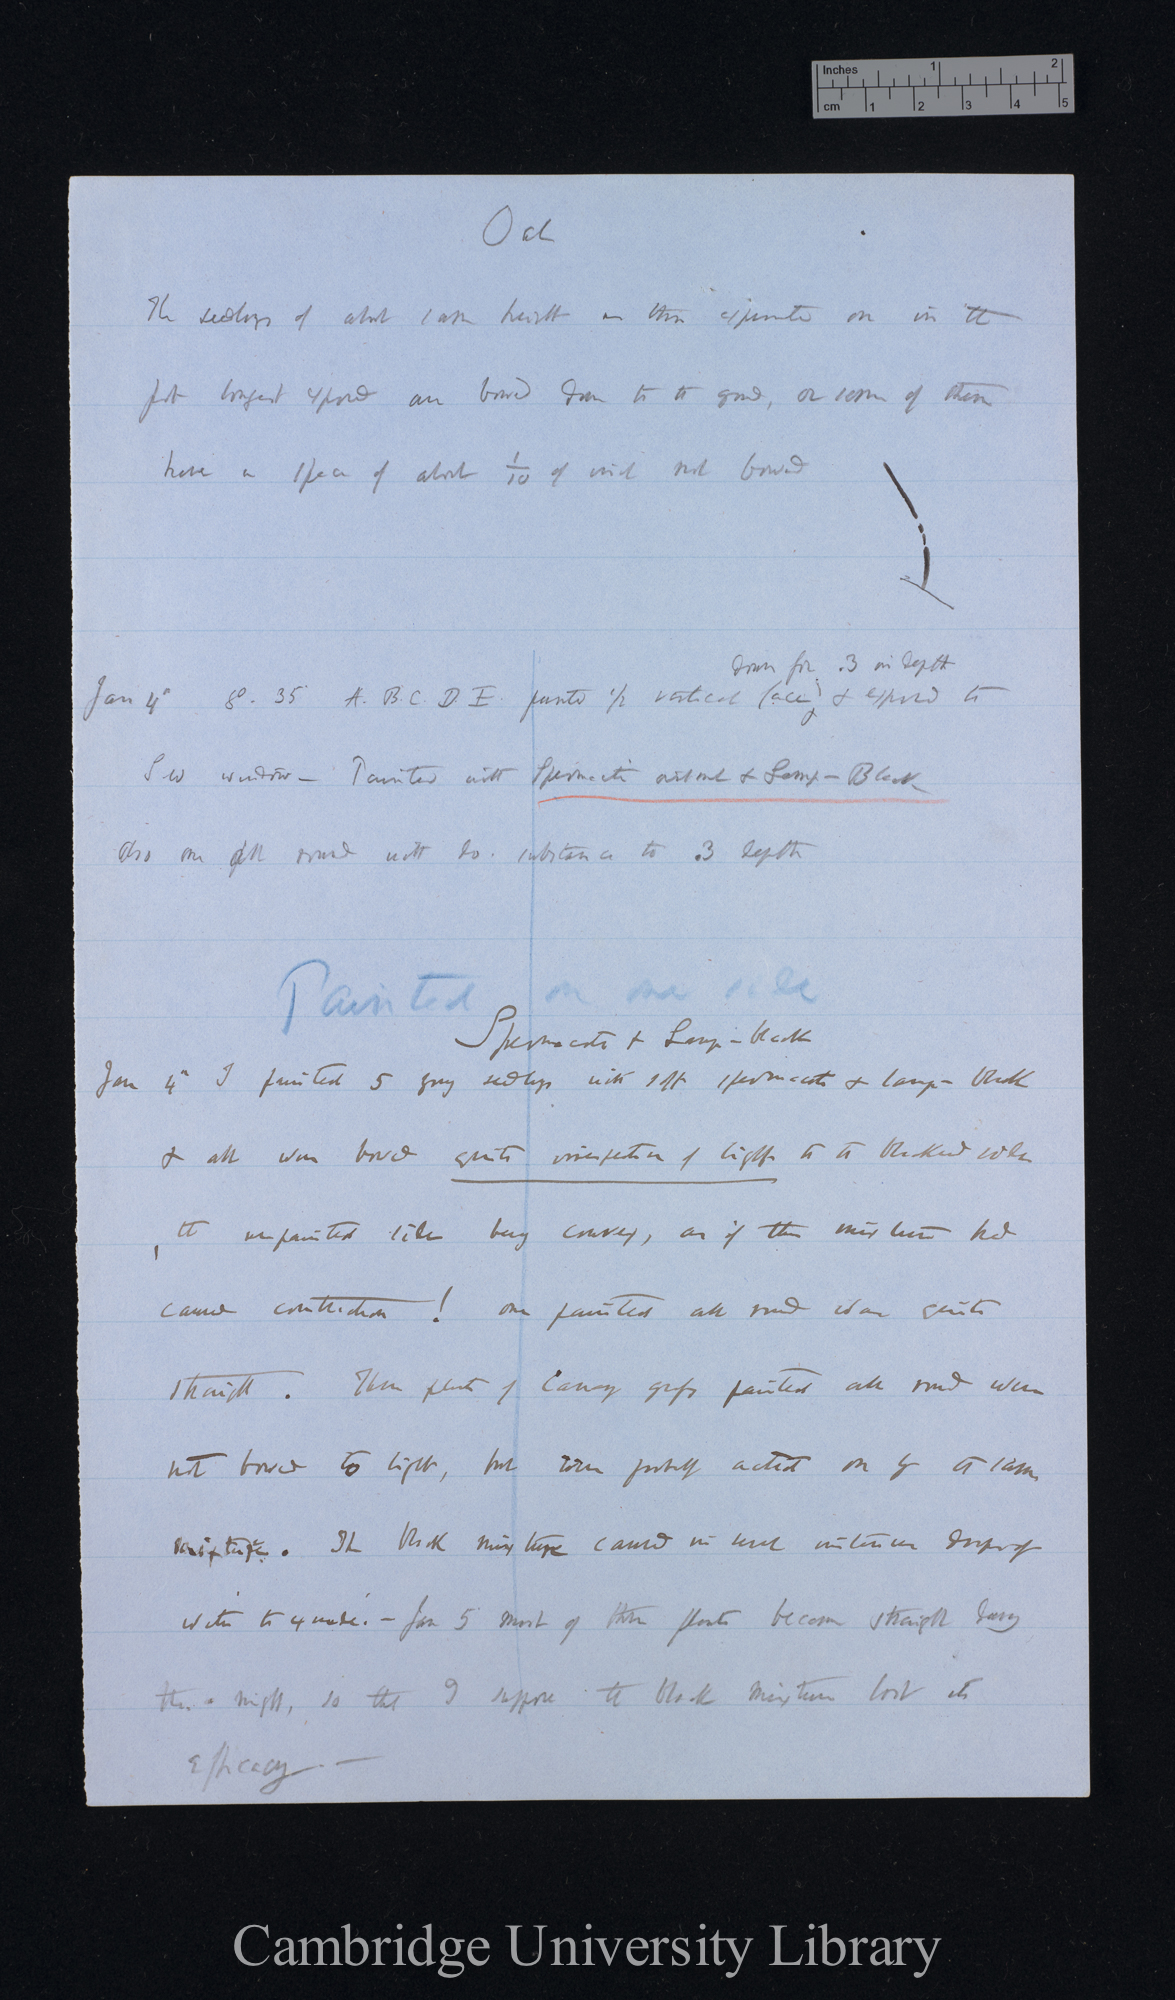 Inches 1 2
cm 1 2 3 4 5
Oat
The seedlings of about same height as those experimented on in the
pot longest exposed are bowed down to the ground, or some of them
have a space of about 1/10 of inch not bowed
down for .3 in depth
Jan 4th 8. 35 A. B. C. D. E. painted 1/2 vertical (all) & exposed to
S W window — Painted with Spermaceti ointment & Lamp-Black
Also one all round with do. substance to .3 depth
Painted on one side
Spermaceti & Lamp-black
Jan 4th I painted 5 young seedlings with soft spermaceti & lamp-black
& all were bowed quite irrespective of light to the blacked side
, the unpainted side being convex, as if the mixture had
caused contraction! one painted all round was quite
straight. Three plants of Canary grass painted all round were
not bowed to light, but were probably acted on by the same
mixture. The black mixture caused in several instances drops of
water to exude. — Jan 5 most of these plants became straight during
the night, so that I suppose the black mixture lost its
efficacy. —
Cambridge University Library